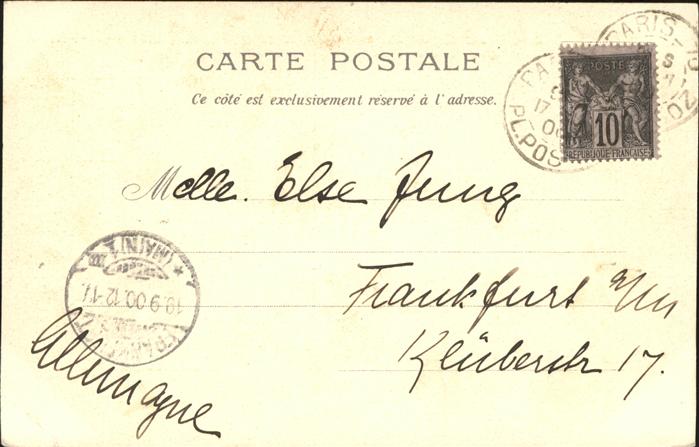 CARTE POSTALE
Ce côté est exclusivement réservé à l'adresse.
POSTE
10
RÉPUBLIQUE FRANÇAISE
PARIS
17
PL.
Melle. Else Jung
Frankfurt a/M
Klüberstr 17.
Allemagne
(MAIN)
19.9.00.12-1